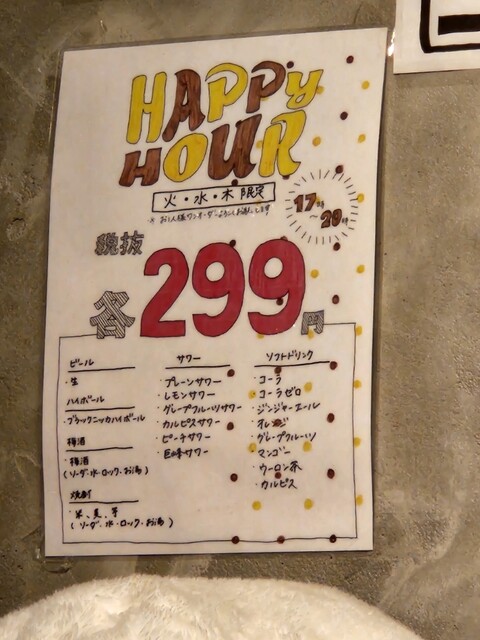 HAPPY
HOUR
火・水・木 限定
※お1人様ワンオーダーよろしくお願いします
17時〜20時
税抜
各299円
ビール
・生
ハイボール
・ブラックニッカハイボール
梅酒
・梅酒
(ソーダ・水・ロック・お湯)
焼酎
・米、麦、芋
(ソーダ・水・ロック・お湯)
サワー
・プレーンサワー
・レモンサワー
・グレープフルーツサワー
・カルピスサワー
・ピーチサワー
・巨峰サワー
ソフトドリンク
・コーラ
・コーラゼロ
・ジンジャーエール
・オレンジ
・グレープフルーツ
・マンゴー
・ウーロン茶
・カルピス